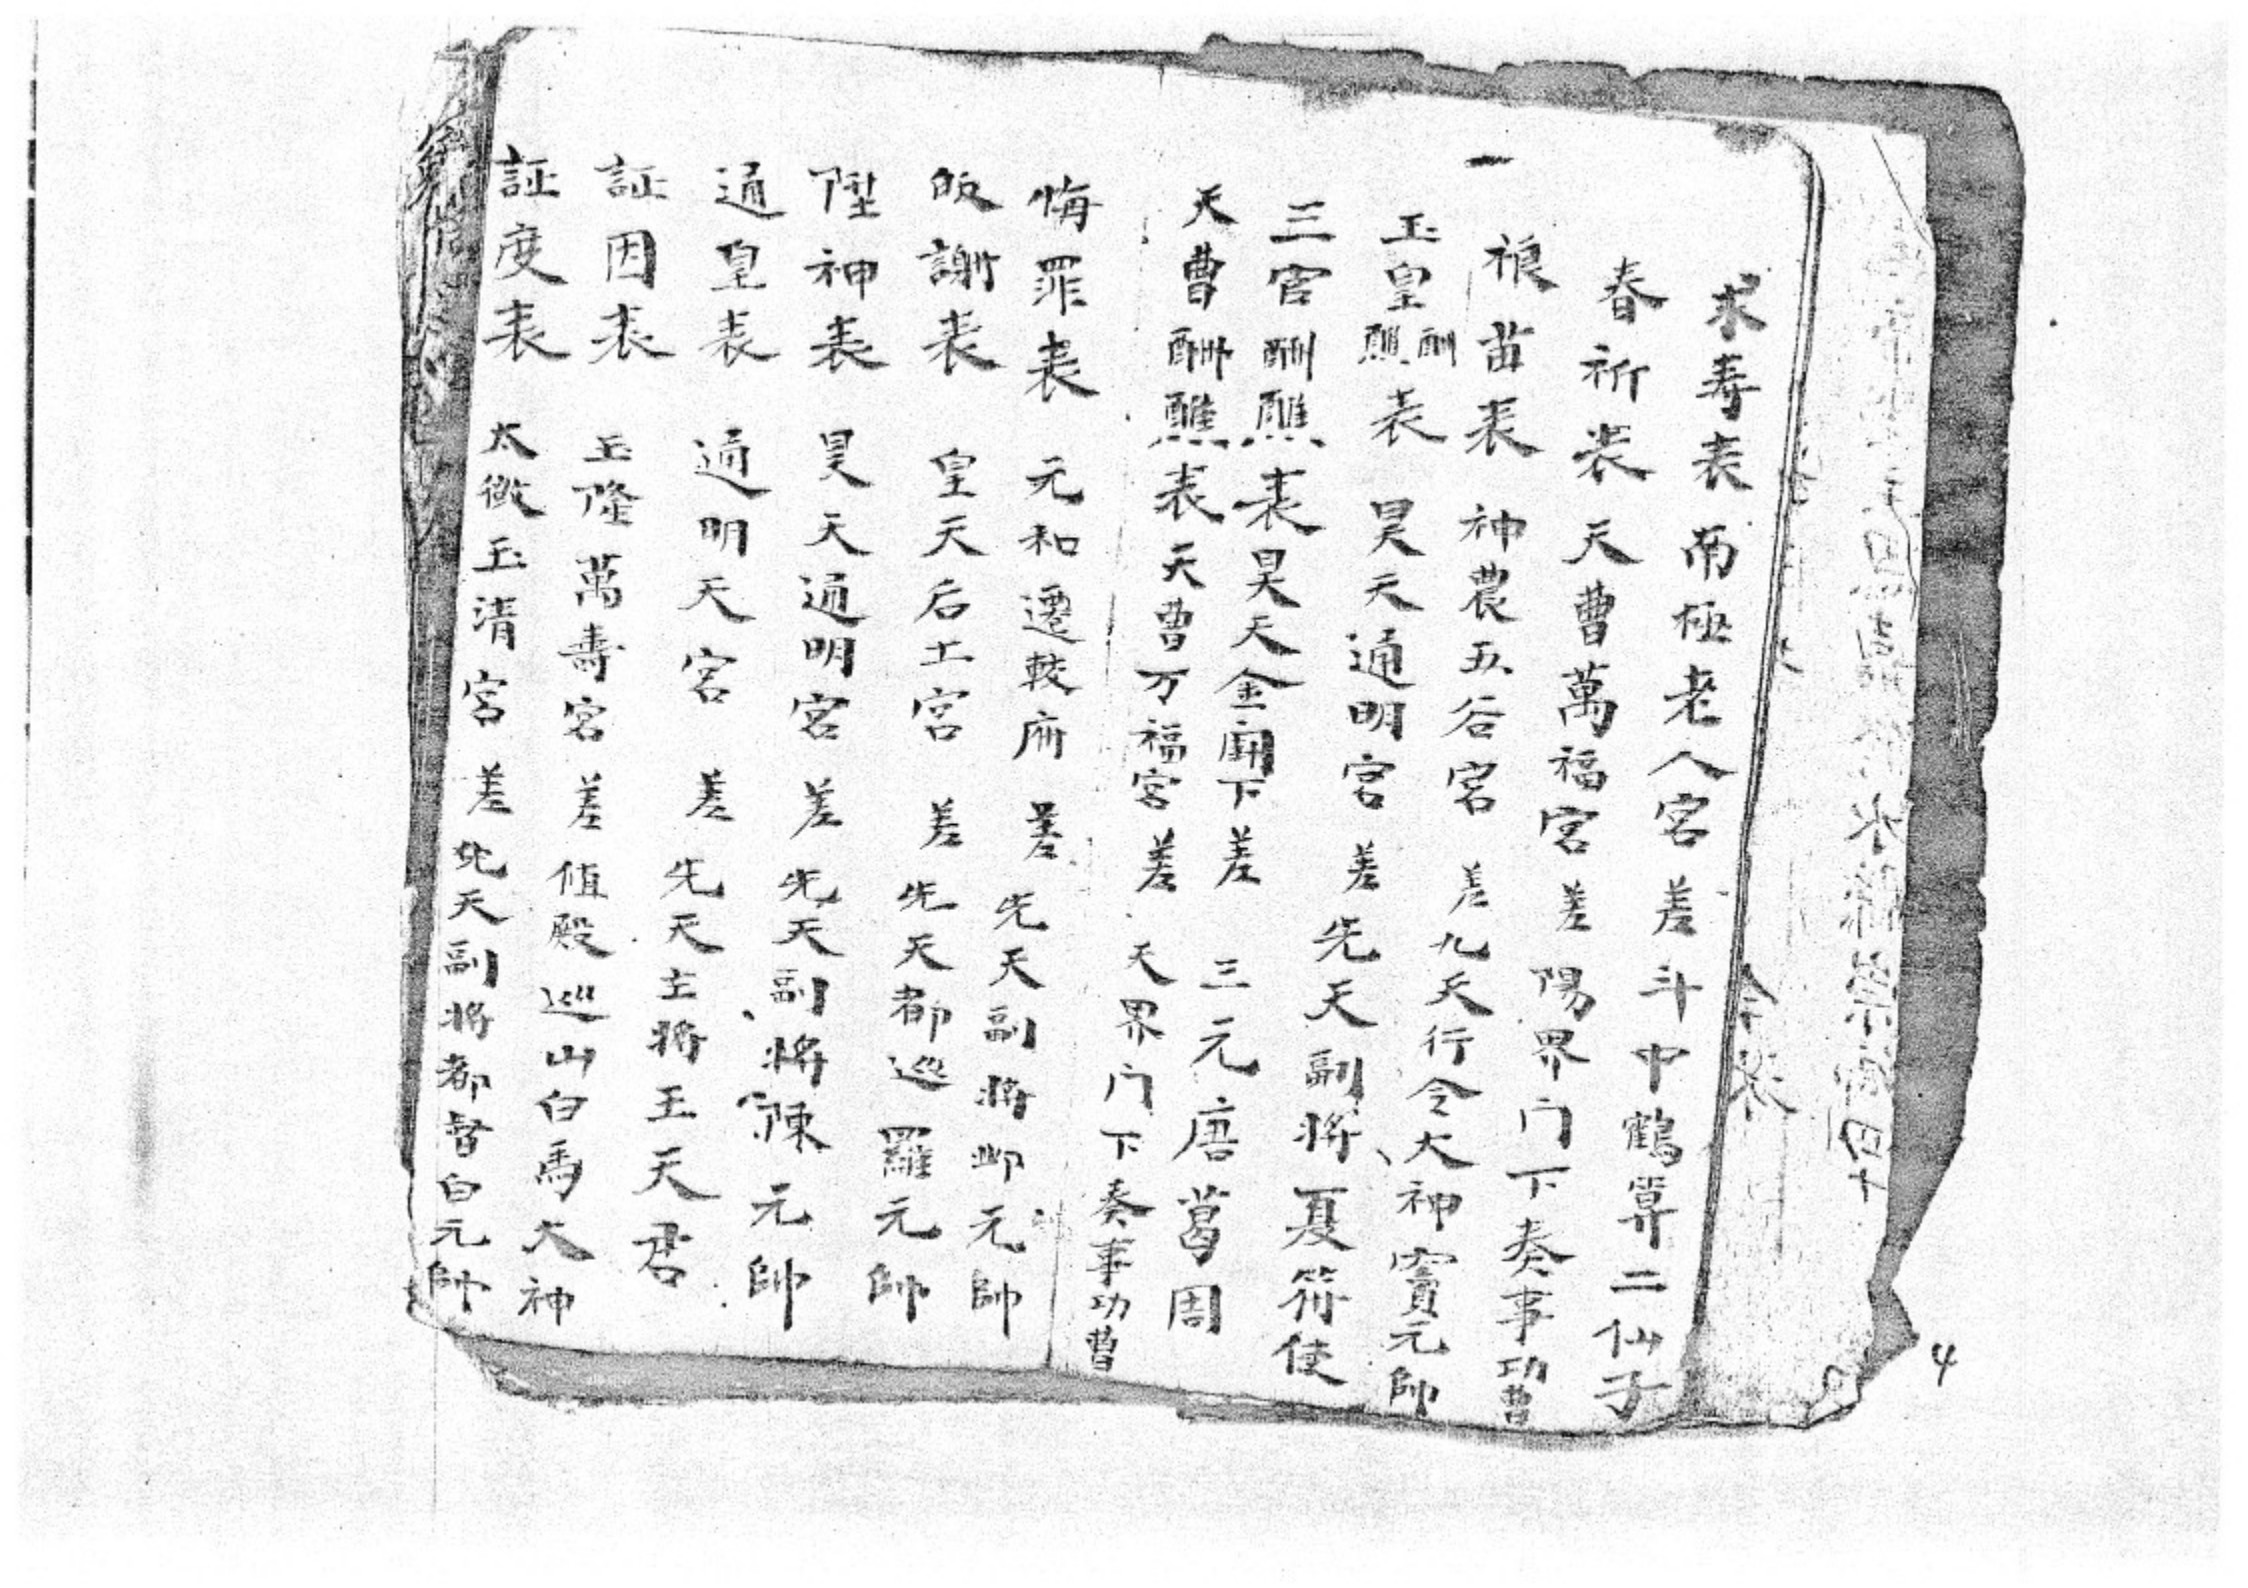 求寿表 南極老人宮 差 斗中鶴算二仙子
春祈表 天曹萬福宮 差 陽界门下奏事功曹
一 禳苗表 神農五谷宮 差 九天行令大神竇元帥
玉皇酬醮表 昊天通明宮 差 先天副将夏符使
三官酬醮表 昊天金闕下 差 三元唐葛周
天曹酬醮表 天曹万福宮 差 天界门下奏事功曹
悔罪表 元和遷較府 差 先天副将邺元帥
皈謝表 皇天后土宮 差 先天都巡羅元帥
陞神表 昊天通明宮 差 先天副将陳元帥
通皇表 通明天宮 差 先天主将王天君
証因表 玉隆萬壽宮 差 值殿巡山白馬大神
証度表 太微玉清宮 差 先天副将都督白元帥
4